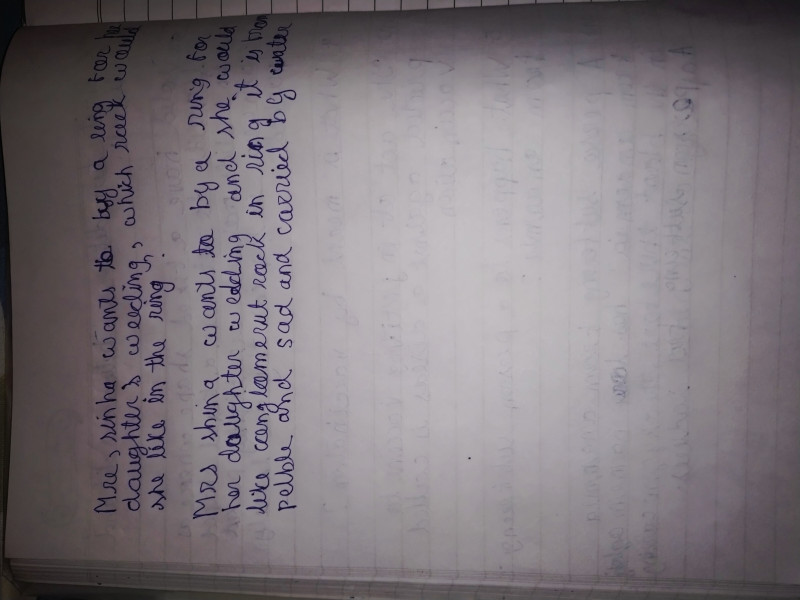 Mre, sinha wants to buy a ring for he
daughter's weeding, which rock would
she like in the ring.
Mrs shina wants to by a ring for
her daughter wedding and she would
like conglamerut rock in ring it is from
pelble and sad and carried by water